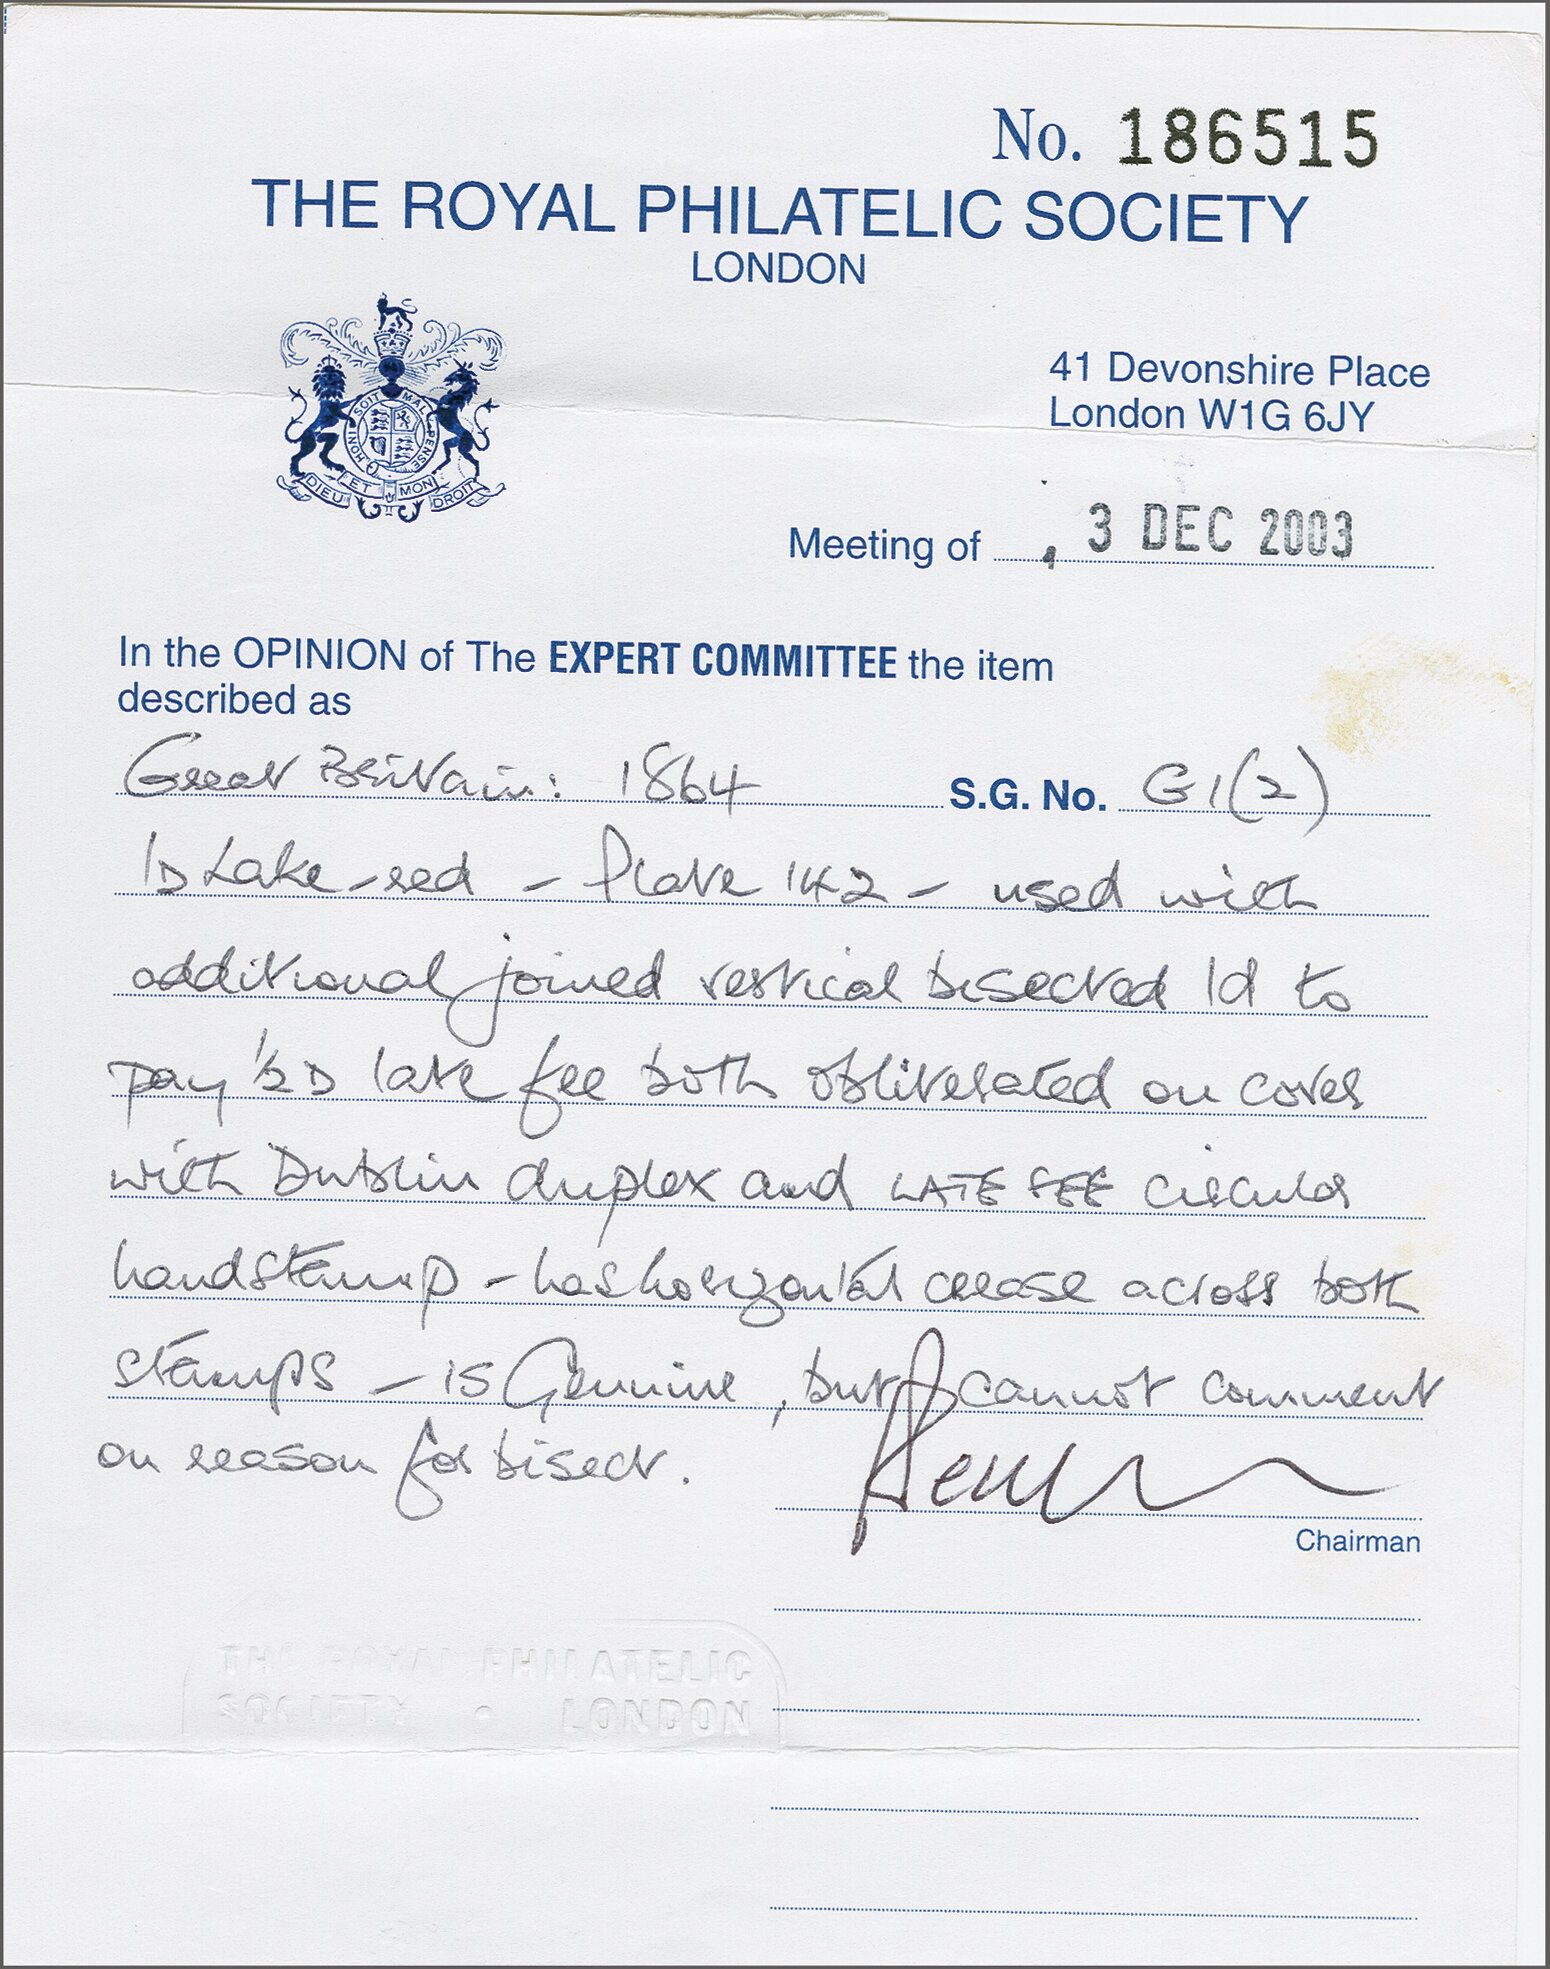 No. 186515
THE ROYAL PHILATELIC SOCIETY
LONDON
HONI SOIT MAL PENSE
DIEU ET MON DROIT
41 Devonshire Place
London W1G 6JY
Meeting of 3 DEC 2003
In the OPINION of The EXPERT COMMITTEE the item
described as
Great Britain: 1864 S.G. No. G1(2)
1D Lake-red - Plate 142 - used with
additional joined vertical bisected 1d to
pay ½D late fee both obliterated on cover
with Dublin duplex and LATE FEE circular
handstamp - has horizontal crease across both
stamps - is Genuine, but cannot comment
on reason for bisect.
Chairman
THE ROYAL PHILATELIC
SOCIETY • LONDON